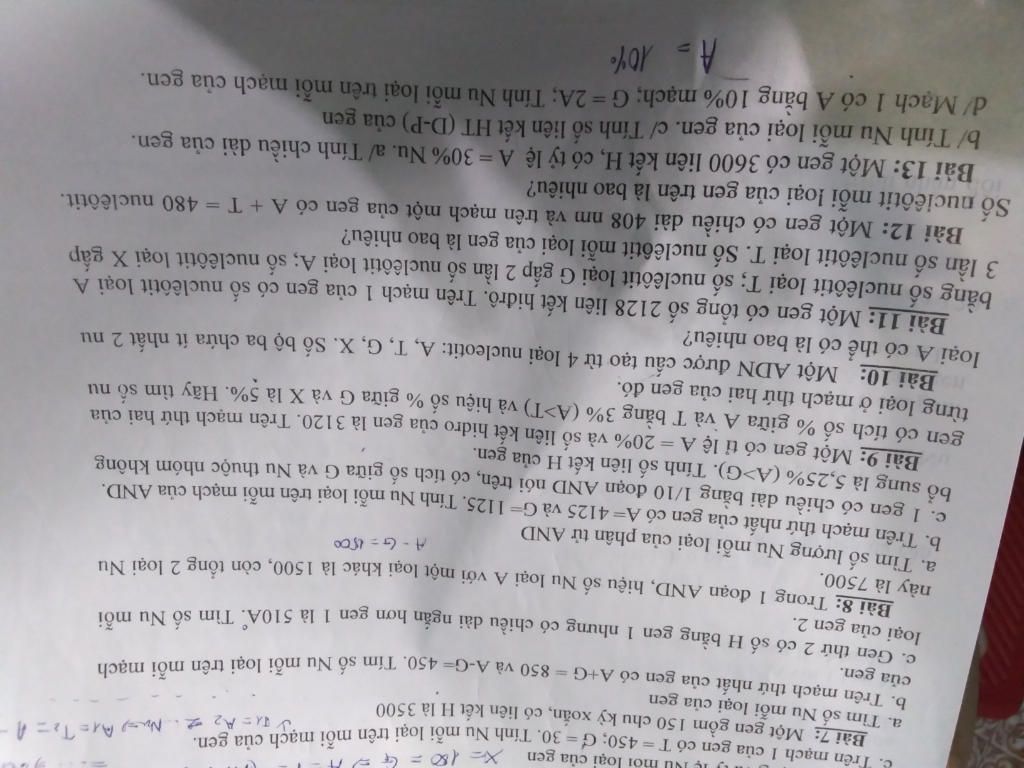 tỷ lệ Nu mỗi loại của gen
X = 180 = G
c. Trên mạch 1 của gen có T = 450; G = 30. Tính Nu mỗi loại trên mỗi mạch của gen.
Bài 7: Một gen gồm 150 chu kỳ xoắn, có liên kết H là 3500
a. Tìm số Nu mỗi loại của gen
b. Trên mạch thứ nhất của gen có A+G = 850 và A-G= 450. Tìm số Nu mỗi loại trên mỗi mạch
của gen.
c. Gen thứ 2 có số H bằng gen 1 nhưng có chiều dài ngắn hơn gen 1 là 510A°. Tìm số Nu mỗi
loại của gen 2.
Bài 8: Trong 1 đoạn AND, hiệu số Nu loại A với một loại khác là 1500, còn tổng 2 loại Nu
này là 7500.
A - G = 1500
a. Tìm số lượng Nu mỗi loại của phân tử AND
b. Trên mạch thứ nhất của gen có A= 4125 và G= 1125. Tính Nu mỗi loại trên mỗi mạch của AND.
c. 1 gen có chiều dài bằng 1/10 đoạn AND nói trên, có tích số giữa G và Nu thuộc nhóm không
bổ sung là 5,25% (A>G). Tính số liên kết H của gen.
Bài 9: Một gen có tỉ lệ A = 20% và số liên kết hidro của gen là 3120. Trên mạch thứ hai của
gen có tích số % giữa A và T bằng 3% (A>T) và hiệu số % giữa G và X là 5%. Hãy tìm số nu
từng loại ở mạch thứ hai của gen đó.
Bài 10: Một ADN được cấu tạo từ 4 loại nucleotit: A, T, G, X. Số bộ ba chứa ít nhất 2 nu
loại A có thể có là bao nhiêu?
Bài 11: Một gen có tổng số 2128 liên kết hiđrô. Trên mạch 1 của gen có số nuclêôtit loại A
bằng số nuclêôtit loại T; số nuclêôtit loại G gấp 2 lần số nuclêôtit loại A; số nuclêôtit loại X gấp
3 lần số nuclêôtit loại T. Số nuclêôtit mỗi loại của gen là bao nhiêu?
Bài 12: Một gen có chiều dài 408 nm và trên mạch một của gen có A + T = 480 nuclêôtit.
Số nuclêôtit mỗi loại của gen trên là bao nhiêu?
Bài 13: Một gen có 3600 liên kết H, có tỷ lệ A = 30% Nu. a/ Tính chiều dài của gen.
b/ Tính Nu mỗi loại của gen. c/ Tính số liên kết HT (D-P) của gen
d/ Mạch 1 có A bằng 10% mạch; G = 2A; Tính Nu mỗi loại trên mỗi mạch của gen.
A = 10%